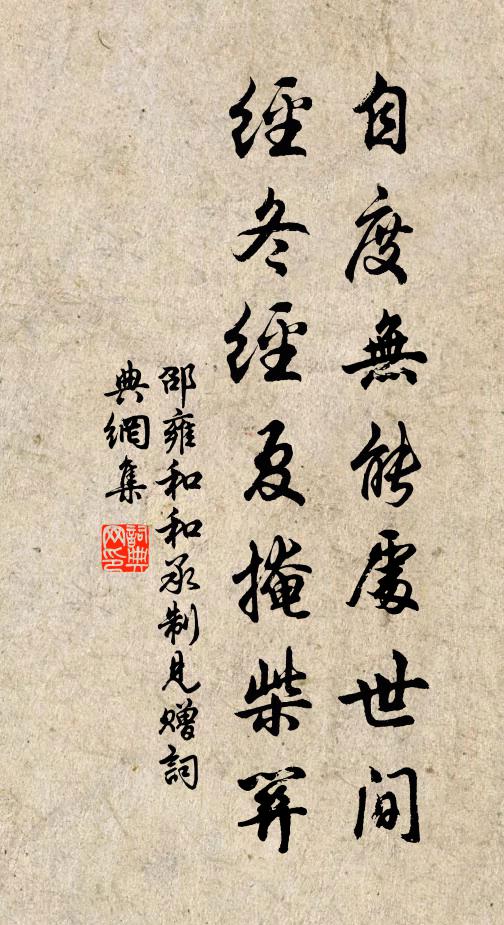 自度無能處世間
經冬經夏掩柴關
邵雍和和承制見贈詞
典網集
詞典
网印